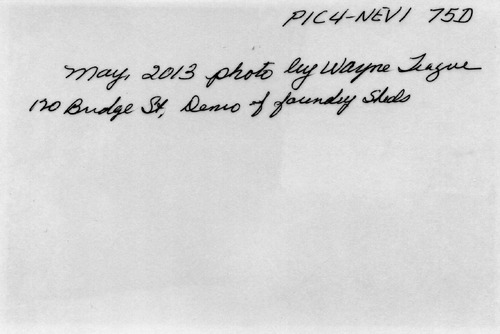 PIC4-NEV1 75D
May, 2013 photo by Wayne Teague
120 Bridge St, Demo of foundry Sheds